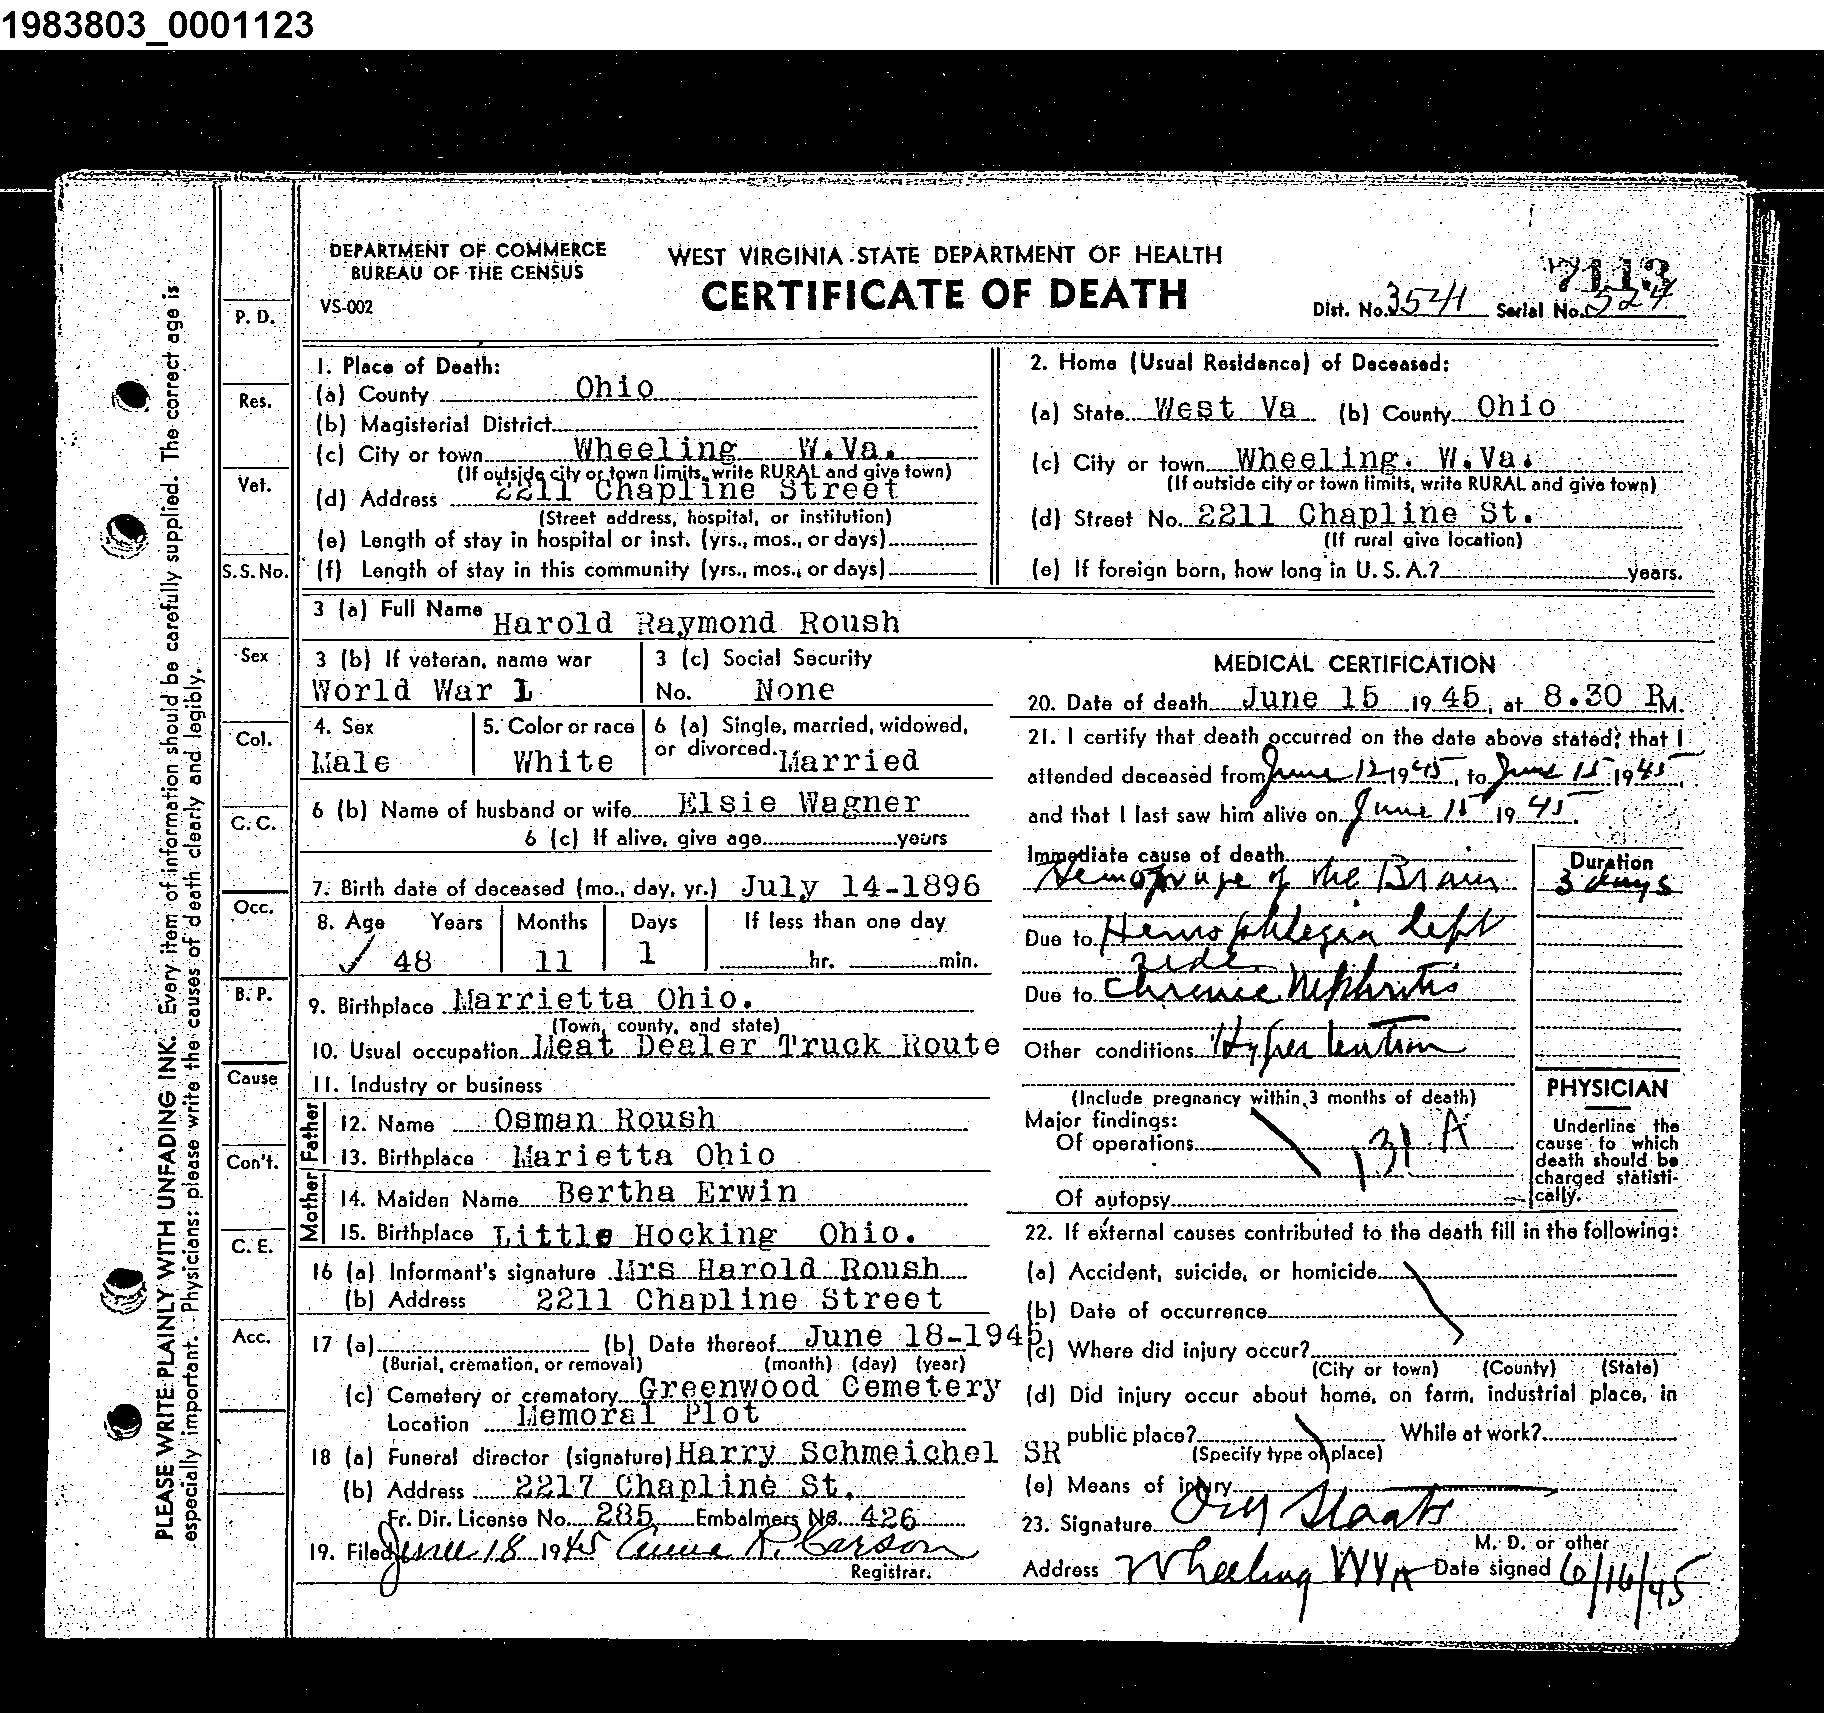 1983803_0001123
DEPARTMENT OF COMMERCE
BUREAU OF THE CENSUS
VS-002
WEST VIRGINIA STATE DEPARTMENT OF HEALTH
CERTIFICATE OF DEATH
7113
Dist. No. 3524 Serial No. 524
PLEASE WRITE PLAINLY WITH UNFADING INK. Every item of information should be carefully supplied. The correct age is
especially important. Physicians: please write the causes of death clearly and legibly.
P. D.
Res.
Vet.
S.S. No.
Sex
Col.
C. C.
Occ.
B. P.
Cause
Con't.
C. E.
Acc.
1. Place of Death:
(a) County Ohio
(b) Magisterial District
(c) City or town Wheeling W.Va.
(If outside city or town limits, write RURAL and give town)
(d) Address 2211 Chapline Street
(Street address, hospital, or institution)
(e) Length of stay in hospital or inst. (yrs., mos., or days)
(f) Length of stay in this community (yrs., mos., or days)
2. Home (Usual Residence) of Deceased:
(a) State West Va (b) County Ohio
(c) City or town Wheeling. W.Va.
(If outside city or town limits, write RURAL and give town)
(d) Street No. 2211 Chapline St.
(If rural give location)
(e) If foreign born, how long in U. S. A.? years.
3 (a) Full Name Harold Raymond Roush
3 (b) If veteran, name war
World War I
3 (c) Social Security
No. None
4. Sex
Male
5. Color or race
White
6 (a) Single, married, widowed,
or divorced. Married
6 (b) Name of husband or wife Elsie Wagner
6 (c) If alive, give age years
7. Birth date of deceased (mo., day, yr.) July 14-1896
8. Age Years Months Days If less than one day
✓ 48 11 1 hr. min.
9. Birthplace Marrietta Ohio.
(Town, county, and state)
10. Usual occupation Meat Dealer Truck Route
11. Industry or business
Father
12. Name Osman Roush
13. Birthplace Marietta Ohio
Mother
14. Maiden Name Bertha Erwin
15. Birthplace Little Hocking Ohio.
16 (a) Informant's signature Mrs Harold Roush
(b) Address 2211 Chapline Street
17 (a) (b) Date thereof June 18-1945
(Burial, cremation, or removal) (month) (day) (year)
(c) Cemetery or crematory Greenwood Cemetery
Location Memoral Plot
18 (a) Funeral director (signature) Harry Schmeichel SR
(b) Address 2217 Chapline St.
Fr. Dir. License No. 285 Embalmers No. 426
19. Filed June 18 1945 Anna R. Carson
Registrar.
MEDICAL CERTIFICATION
20. Date of death June 15 1945, at 8.30 P.M.
21. I certify that death occurred on the date above stated; that I
attended deceased from June 12 1945, to June 15 1945,
and that I last saw him alive on June 15 1945.
Immediate cause of death
Hemorrhage of the Brain
Duration
3 days
Due to Hemophlegia left
side
Due to Chronic Nephritis
Other conditions Hypertention
(Include pregnancy within 3 months of death)
Major findings:
Of operations
131 A
Of autopsy
PHYSICIAN
Underline the
cause to which
death should be
charged statisti-
cally.
22. If external causes contributed to the death fill in the following:
(a) Accident, suicide, or homicide
(b) Date of occurrence
(c) Where did injury occur?
(City or town) (County) (State)
(d) Did injury occur about home, on farm, industrial place, in
public place? While at work?
(Specify type of place)
(e) Means of injury
23. Signature Staats
M. D. or other
Address Wheeling W Va Date signed 6/16/45